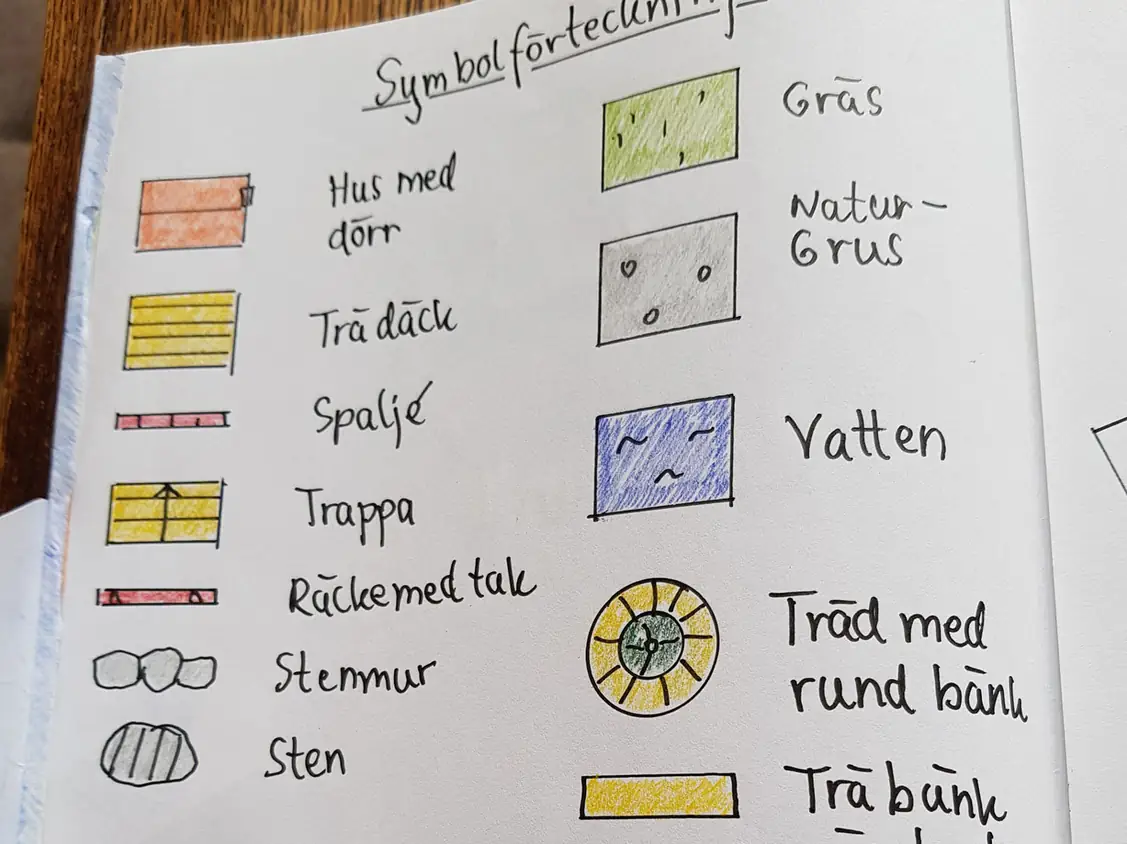 Symbolförteckning
Hus med
dörr
Trä däck
Spaljé
Trappa
Räcke med tak
Stenmur
Sten
Gräs
Natur-
Grus
Vatten
Träd med
rund bänk
Trä bänk